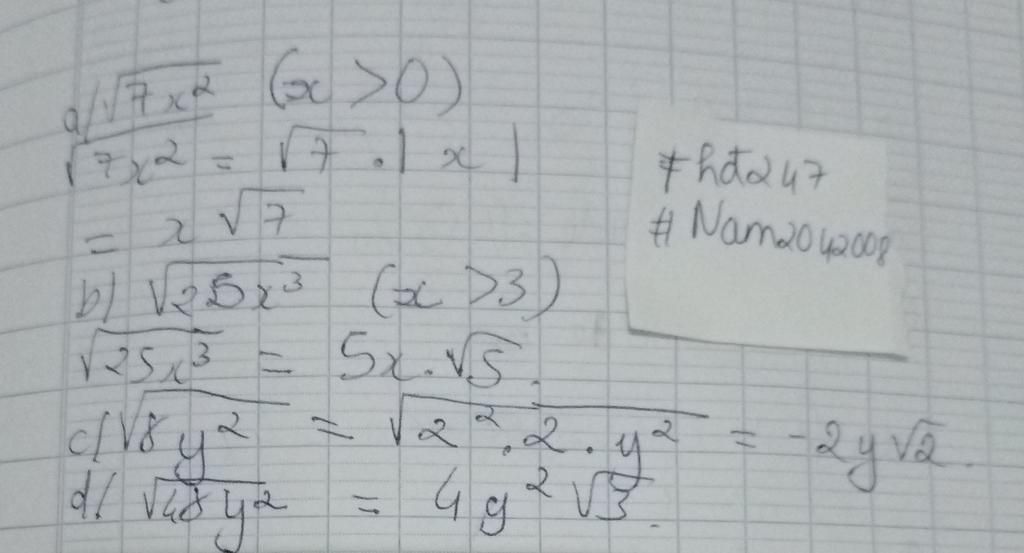 a) √7x² (x > 0)
√7x² = √7 . | x |
= x √7
b) √25x³ (x > 3)
√25x³ = 5x . √5 .
c) √8y² = √2² . 2 . y² = -2y√2 .
d) √48y² = 4y² √3 .
#hđ247
#Nam2042008